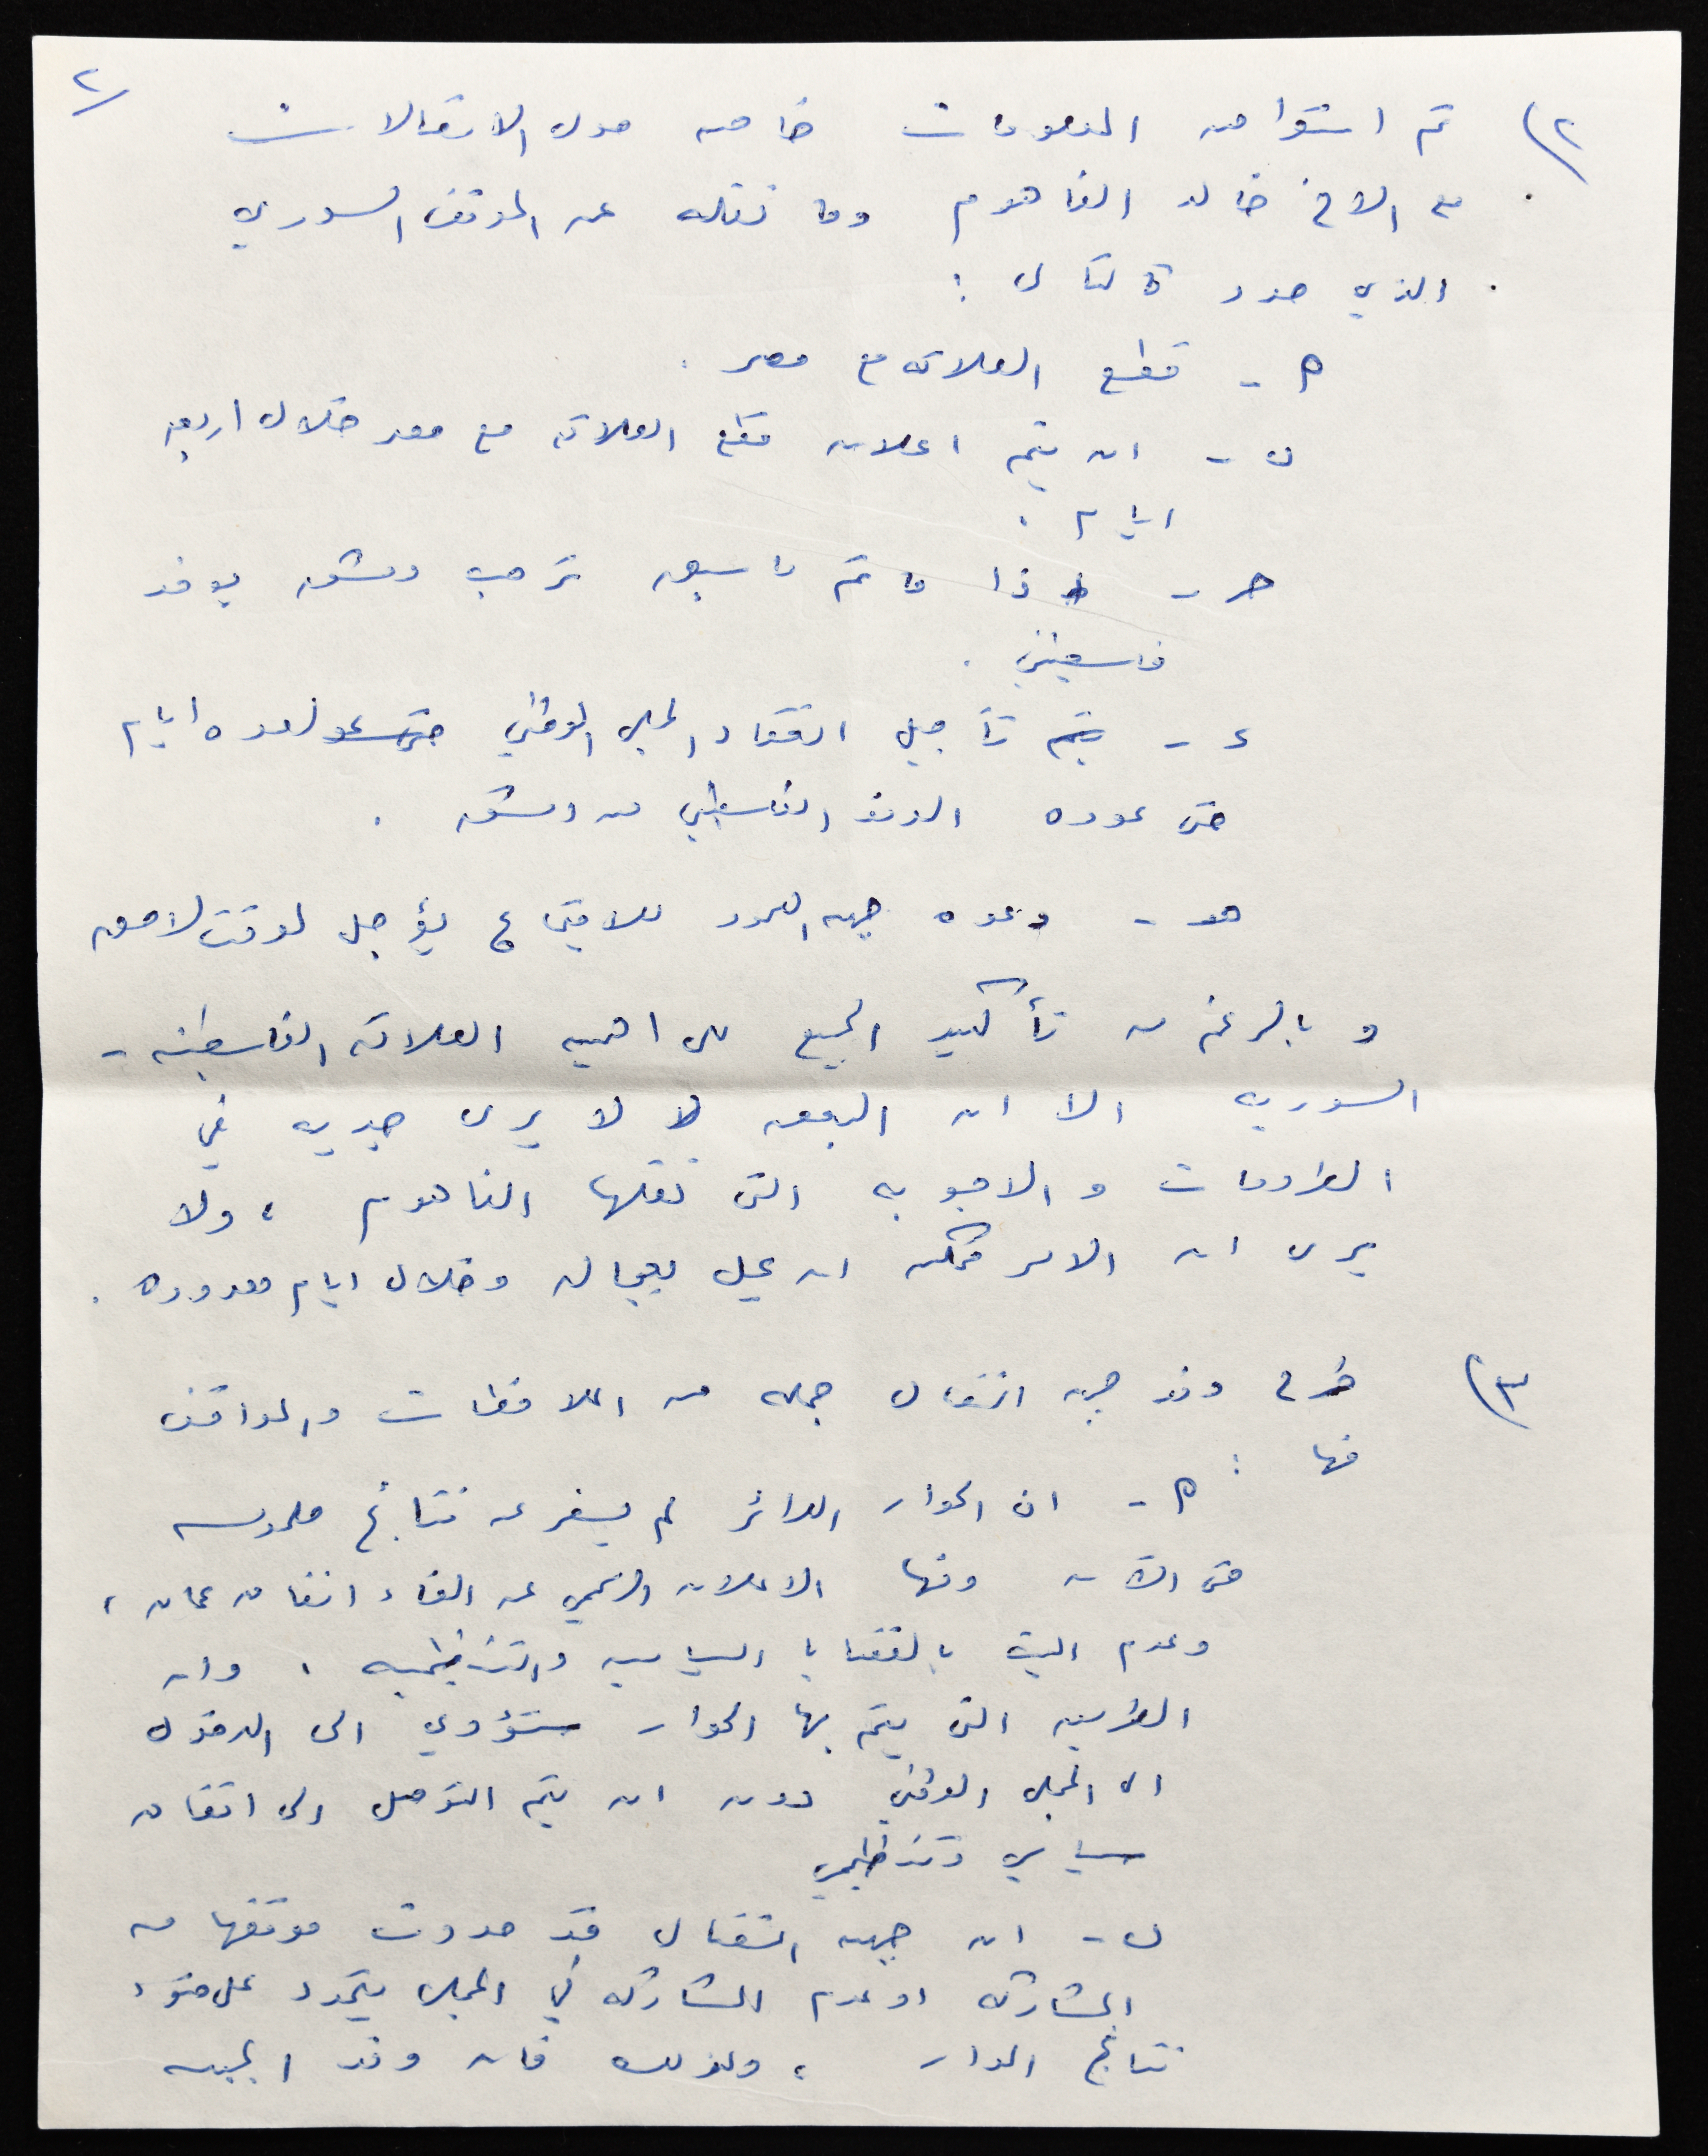 ٢/
٢) تم استعراض المعلومات خاصه حول الاتصالات
مع الاخ خالد الفاهوم وما نقله عن الموقف السوري
الذي حدد كالتالي :
أ - قطع العلاقه مع مصر .
ب - ان يتم اعلان قطع العلاقه مع مصر خلال اربعه
ايام .
حـ - اذا ما تم ما سبق ترحب دمشق بوفد
فلسطيني .
د - يتم تأجيل انعقاد المجلس الوطني لعده ايام
حتى عوده الوفد الفلسطيني من دمشق .
هـ - دعوه جبهه الصمود للاجتماع يؤجل لوقت لاحق
و بالرغم من تأكيد الجميع على اهميه العلاقه الفلسطينيه -
السوريه الا ان البعض لا يرى جديه في
الطروحات و الاجوبه التي نقلها الفاهوم ، ولا
يرى ان الامر ممكن ان يحل بعجاله وخلال ايام معدوده .
٣) طرح وفد جبهه النضال جمله من الملاحظات والمواقف
منها :
أ - ان الحوار الدائر لم يسفر عن نتائج ملموسه
حتى الآن ومنها الاعلان الرسمي عن الغاء اتفاق عمان ،
وعدم البت بالقضايا السياسيه والتنظيميه . وان
الطريقه التي يتم بها الحوار ستؤدي الى الدخول
الى المجلس الوطني دون ان يتم التوصل الى اتفاق
سياسي وتنظيمي
ب - ان جبهه النضال قد حددت موقفها من
المشاركه او عدم المشاركه في المجلس يتحدد على ضوء
نتائج الحوار ، ولذلك فان وفد الجبهه